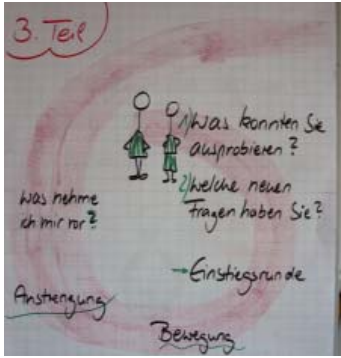 3. Teil
1) Was konnten Sie
ausprobieren?
2) welche neuen
Fragen haben Sie?
was nehme
ich mir vor?
→ Einstiegsrunde
Anstrengung
Bewegung